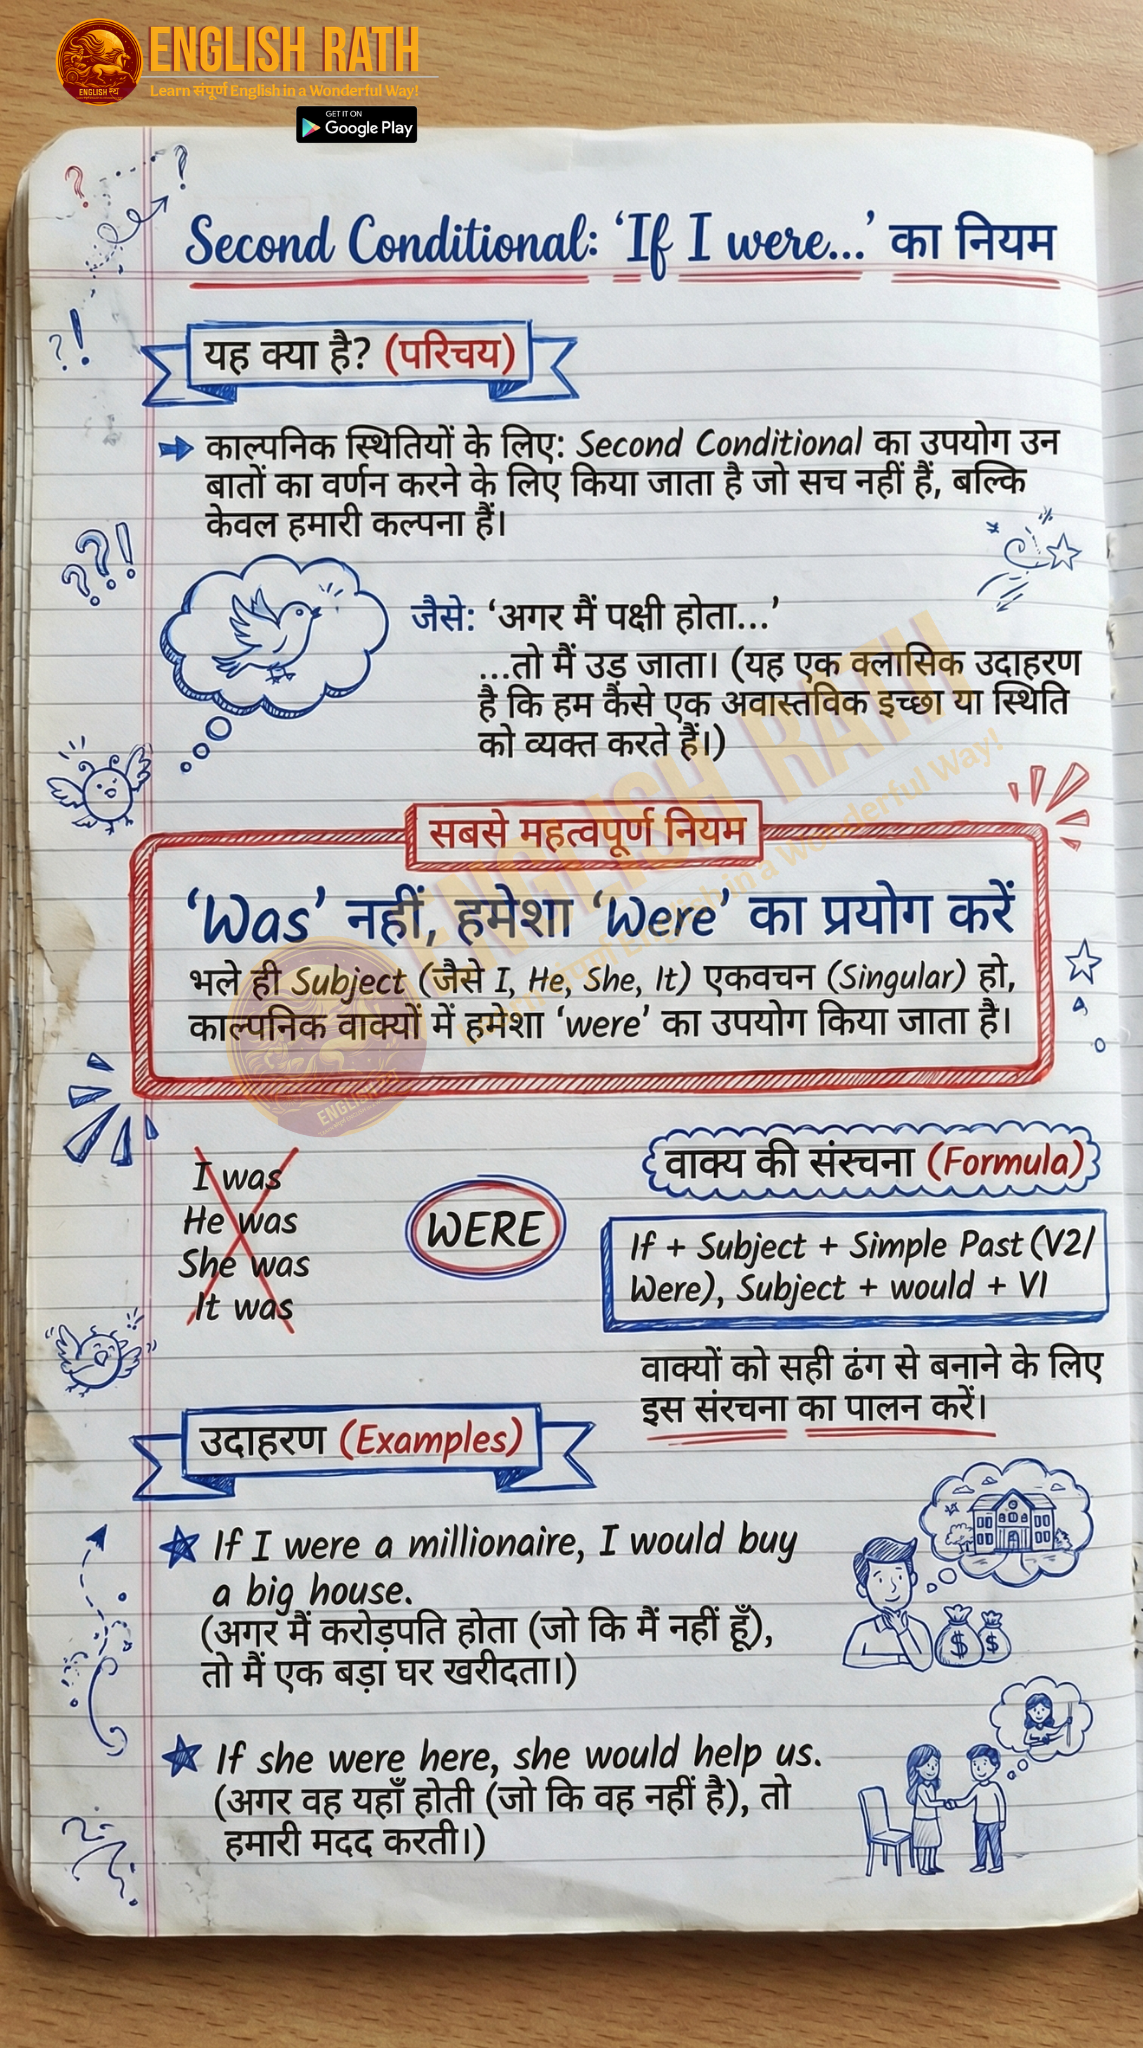 ENGLISH RATH
Learn संपूर्ण English in a Wonderful Way!
ENGLISH रथ
GET IT ON
Google Play
Second Conditional: ‘If I were...’ का नियम
यह क्या है? (परिचय)
काल्पनिक स्थितियों के लिए: Second Conditional का उपयोग उन
बातों का वर्णन करने के लिए किया जाता है जो सच नहीं हैं, बल्कि
केवल हमारी कल्पना हैं।
जैसे: ‘अगर मैं पक्षी होता...’
...तो मैं उड़ जाता। (यह एक क्लासिक उदाहरण
है कि हम कैसे एक अवास्तविक इच्छा या स्थिति
को व्यक्त करते हैं।)
सबसे महत्वपूर्ण नियम
‘Was’ नहीं, हमेशा ‘Were’ का प्रयोग करें
भले ही Subject (जैसे I, He, She, It) एकवचन (Singular) हो,
काल्पनिक वाक्यों में हमेशा ‘were’ का उपयोग किया जाता है।
ENGLISH RATH
Learn संपूर्ण English in a Wonderful Way!
I was
He was
She was
It was
WERE
वाक्य की संरचना (Formula)
If + Subject + Simple Past (V2/
Were), Subject + would + V1
वाक्यों को सही ढंग से बनाने के लिए
इस संरचना का पालन करें।
उदाहरण (Examples)
If I were a millionaire, I would buy
a big house.
(अगर मैं करोड़पति होता (जो कि मैं नहीं हूँ),
तो मैं एक बड़ा घर खरीदता।)
If she were here, she would help us.
(अगर वह यहाँ होती (जो कि वह नहीं है), तो
हमारी मदद करती।)